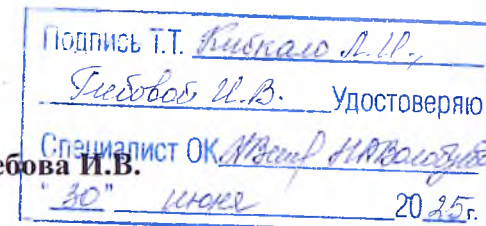 Подпись Т.Т. Кибкало Л.И.,
Глебовой И.В. Удостоверяю
Специалист ОК
ебова И.В.
"30" июня 2025г.